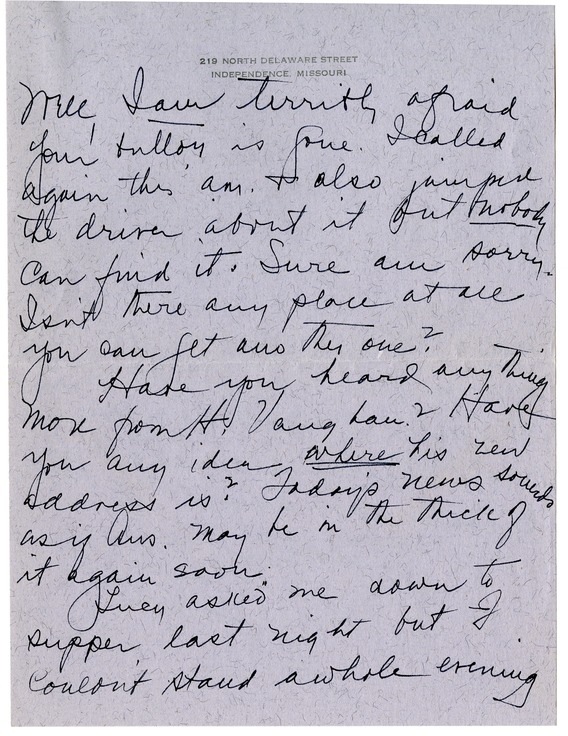 219 NORTH DELAWARE STREET
INDEPENDENCE, MISSOURI
Well, I am terribly afraid
your button is gone. I called
again this a.m. & also jumped
the driver about it but nobody
can find it. Sure am sorry.
Isn't there any place at all
you can get another one?
Have you heard anything
more from H. Vaughan? Have
you any idea where his new
address is? Today's news sounds
as if Aus. may be in the thick of
it again soon.
Lucy asked me down to
supper last night but I
couldn't stand a whole evening